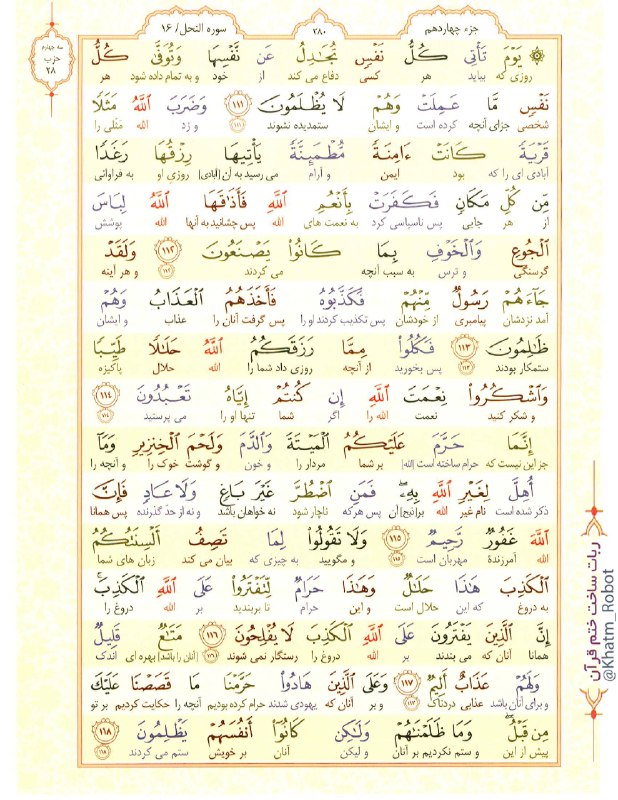 جزء چهاردهم
۲۸۰
سوره النحل/ ۱۶
سه چهارم
حزب
۲۸
يَوْمَ تَأْتِي كُلُّ نَفْسٍ تُجَادِلُ عَن نَّفْسِهَا وَتُوَفَّىٰ كُلُّ
روزی که بیاید هر کسی دفاع می کند از خود و به تمام داده شود هر
نَفْسٍ مَّا عَمِلَتْ وَهُمْ لَا يُظْلَمُونَ ۱۱۱ وَضَرَبَ ٱللَّهُ مَثَلًا
شخصی جزای آنچه کرده است و ایشان ستمدیده نشوند ۱۱۱ و زد الله مثلی را
قَرْيَةً كَانَتْ ءَامِنَةً مُّطْمَئِنَّةً يَأْتِيهَا رِزْقُهَا رَغَدًا
آبادی ای را که بود ایمن و آرام می رسید به آن [آبادی] روزی او به فراوانی
مِّن كُلِّ مَكَانٍ فَكَفَرَتْ بِأَنْعُمِ ٱللَّهِ فَأَذَٰقَهَا ٱللَّهُ لِبَاسَ
از هر جایی پس ناسپاسی کرد به نعمت های الله پس چشانید به آنها الله پوشش
ٱلْجُوعِ وَٱلْخَوْفِ بِمَا كَانُوا۟ يَصْنَعُونَ ۱۱۲ وَلَقَدْ
گرسنگی و ترس به سبب آنچه می کردند ۱۱۲ و هر آینه
جَآءَهُمْ رَسُولٌ مِّنْهُمْ فَكَذَّبُوهُ فَأَخَذَهُمُ ٱلْعَذَابُ وَهُمْ
آمد نزدشان پیامبری از خودشان پس تکذیب کردند او را پس گرفت آنان را عذاب و ایشان
ظَٰلِمُونَ ۱۱۳ فَكُلُوا۟ مِمَّا رَزَقَكُمُ ٱللَّهُ حَلَٰلًا طَيِّبًا
ستمکار بودند ۱۱۳ پس بخورید از آنچه روزی داد شما را الله حلال پاکیزه
وَٱشْكُرُوا۟ نِعْمَتَ ٱللَّهِ إِن كُنتُمْ إِيَّاهُ تَعْبُدُونَ ۱۱۴
و شکر کنید نعمت الله را اگر شما تنها او را می پرستید ۱۱۴
إِنَّمَا حَرَّمَ عَلَيْكُمُ ٱلْمَيْتَةَ وَٱلدَّمَ وَلَحْمَ ٱلْخِنزِيرِ وَمَآ
جز این نیست که حرام ساخته است [الله] بر شما مردار را و خون و گوشت خوک را و آنچه را
أُهِلَّ لِغَيْرِ ٱللَّهِ بِهِۦ ۖ فَمَنِ ٱضْطُرَّ غَيْرَ بَاغٍ وَلَا عَادٍ فَإِنَّ
ذکر شده است نام غیر الله بر [ذبح] آن پس هر که ناچار شود نه خواهان باشد و نه از حد گذرنده پس همانا
ٱللَّهَ غَفُورٌ رَّحِيمٌ ۱۱۵ وَلَا تَقُولُوا۟ لِمَا تَصِفُ أَلْسِنَتُكُمُ
الله آمرزندهٔ مهربان است ۱۱۵ و مگویید به چیزی که بیان می کند زبان های شما
ٱلْكَذِبَ هَٰذَا حَلَٰلٌ وَهَٰذَا حَرَامٌ لِّتَفْتَرُوا۟ عَلَى ٱللَّهِ ٱلْكَذِبَ ۚ
به دروغ که این حلال است و این حرام تا بربندید بر الله دروغ را
إِنَّ ٱلَّذِينَ يَفْتَرُونَ عَلَى ٱللَّهِ ٱلْكَذِبَ لَا يُفْلِحُونَ ۱۱۶ مَتَٰعٌ قَلِيلٌ
همانا آنان که می بندند بر الله دروغ را رستگار نمی شوند ۱۱۶ [آنان را باشد] بهره ای اندک
وَلَهُمْ عَذَابٌ أَلِيمٌ ۱۱۷ وَعَلَى ٱلَّذِينَ هَادُوا۟ حَرَّمْنَا مَا قَصَصْنَا عَلَيْكَ
و برای آنان باشد عذابی دردناک ۱۱۷ و بر آنان که یهودی شدند حرام کرده بودیم آنچه را حکایت کردیم بر تو
مِن قَبْلُ ۖ وَمَا ظَلَمْنَٰهُمْ وَلَٰكِن كَانُوٓا۟ أَنفُسَهُمْ يَظْلِمُونَ ۱۱۸
پیش از این و ستم نکردیم بر آنان و لیکن آنان بر خویش ستم می کردند ۱۱۸
ربات ساخت ختم قرآن
@Khatm_Robot